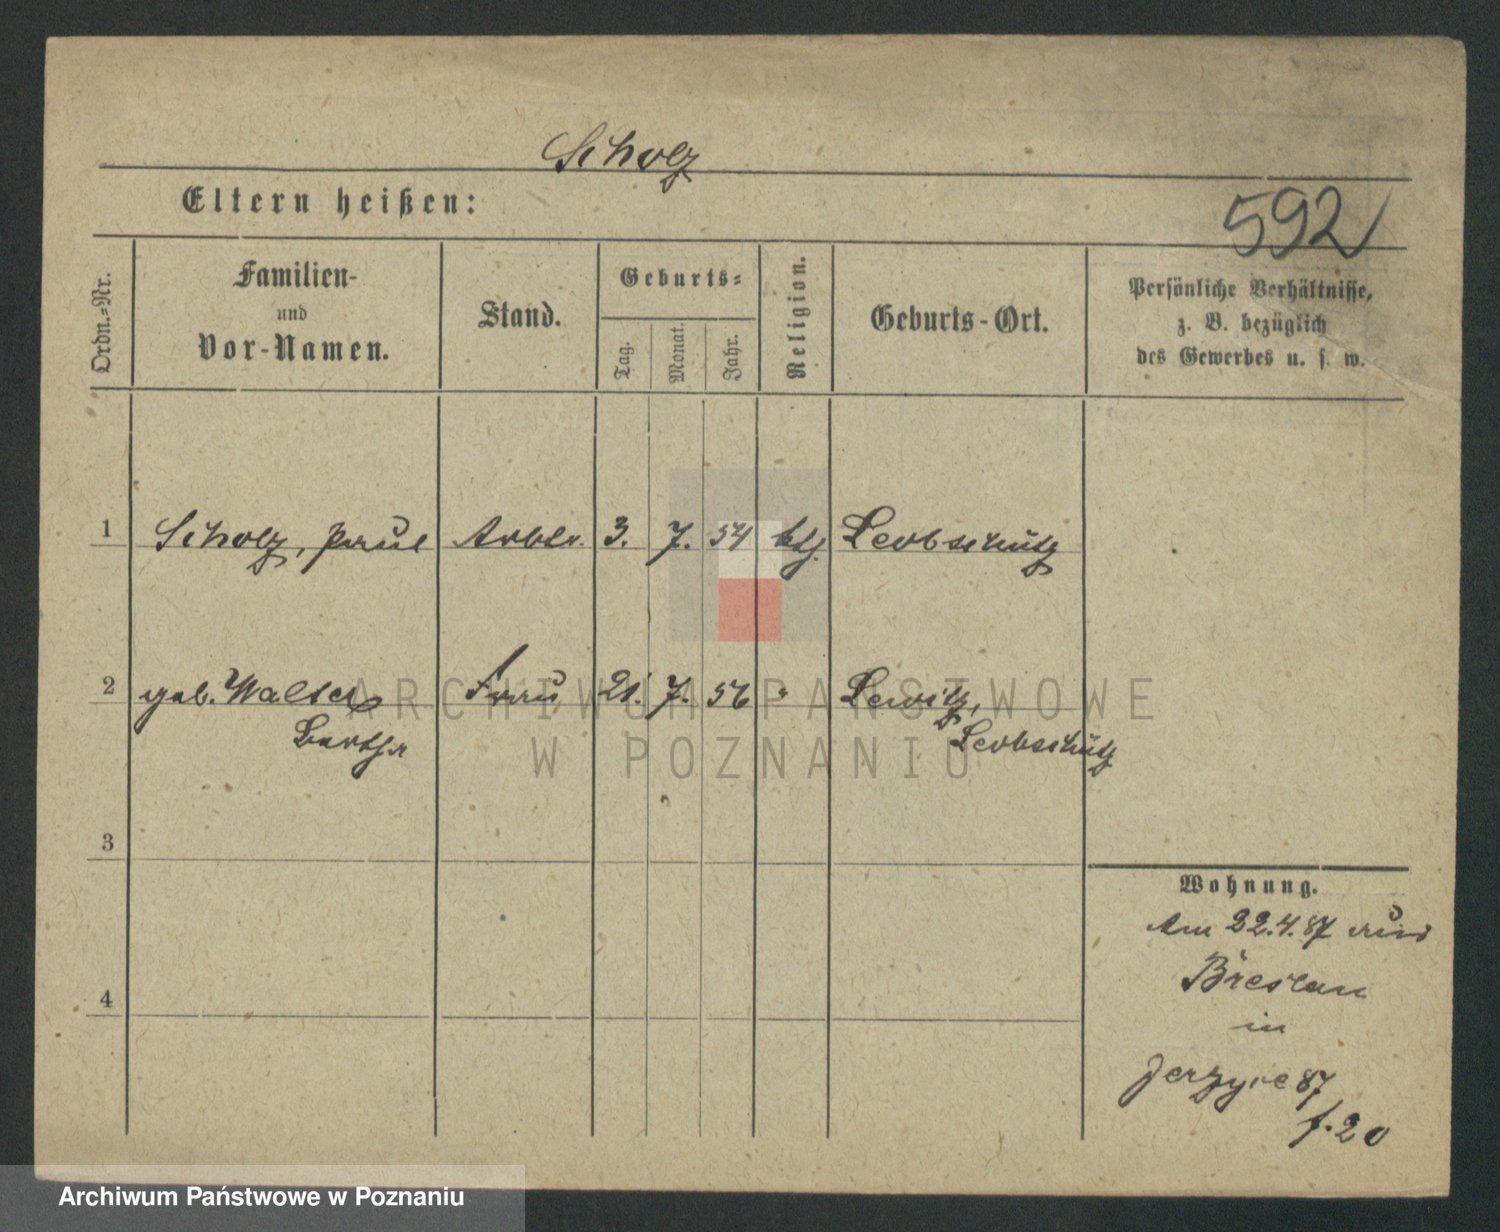 Scholz
Eltern heißen:
592
Ordn.-Nr.
Familien-
und
Vor-Namen.
Stand.
Geburts-
Tag.
Monat.
Jahr.
Religion.
Geburts-Ort.
Persönliche Verhältnisse,
z. B. bezüglich
des Gewerbes u. s. w.
1 Scholz, Paul Arbtr. 3. 7. 54 ktj. Leobschütz
2 geb. Walter Frau 21. 7. 56 " Lewitz,
Bertha Leobschütz
3
Wohnung.
Am 22.4.87 aus
Breslau
4
in
Jerzyce 87
f. 20
ARCHIWUM PAŃSTWOWE
W POZNANIU
Archiwum Państwowe w Poznaniu